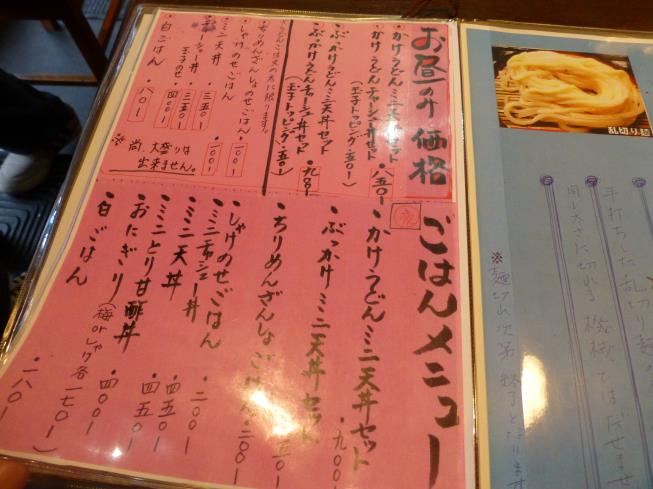 お昼のみ価格
・かけうどんミニ天丼セット
・かけうどんチャーシュー丼セット
(玉子トッピング・五〇)
・八五〇ー
・ぶっかけうどんミニ天丼セット
・ぶっかけうどんチャーシュー丼セット
(玉子トッピング・五〇ー)
・九〇〇ー
うどんご注文の方に限ります。
・ちりめんざんしょのせごはん・一〇〇ー
・しゃけのせごはん・一〇〇ー
・ミニ天丼・三五〇ー
・三五〇ー
玉子のせ・四〇〇ー
・白ごはん・一八〇ー
※尚、大盛りは
出来ません。
夜
ごはんメニュー
・かけうどんミニ天丼セット・九〇〇ー
・ぶっかけミニ天丼セット
・ちりめんざんしょごはん・二〇〇ー
・しゃけのせごはん・二〇〇ー
・ミニチャーシュー丼・四五〇ー
・ミニ天丼・四五〇ー
・ミニとり甘酢丼・四〇〇ー
・おにぎり(梅orしゃけ各一七〇ー)
・白ごはん・一八〇ー
乱切り麺
手打ちした乱切り麺の
同じ太さに切れる機械ではだせませ
※麺切れ次第終了となります